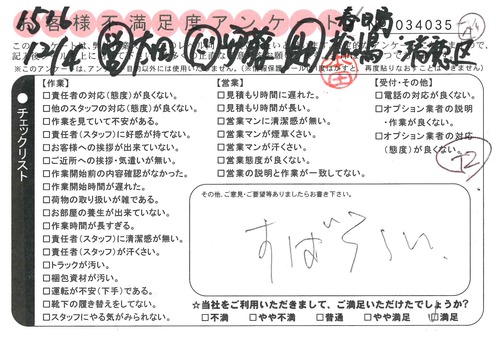 お客様不満足度アンケート
034035
1516
1394
太田
春日
瑞穂区
チェックリスト
【作業】
□責任者の対応(態度)が良くない。
□他のスタッフの対応(態度)が良くない。
□作業を見ていて不安がある。
□責任者(スタッフ)に好感が持てない。
□お客様への挨拶が出来ていない。
□ご近所への挨拶・気遣いが無い。
□作業開始前の内容確認がなかった。
□作業開始時間が遅れた。
□荷物の取り扱いが雑である。
□お部屋の養生が出来ていない。
□作業時間が長すぎる。
□責任者(スタッフ)に清潔感が無い。
□責任者(スタッフ)が汗くさい。
□トラックが汚い。
□梱包資材が汚い。
□運転が不安(下手)である。
□靴下の履き替えをしてない。
□スタッフにやる気がみられない。
【営業】
□訪問時間に遅れた。
□見積もり時間に遅れた。
□見積もり時間が長い。
□営業マンに清潔感が無い。
□営業マンが煙草くさい。
□営業マンが汗くさい。
□営業態度が良くない。
□営業の説明と作業が一致してない。
【受付・その他】
□電話の対応が良くない。
□オプション業者の説明
・作業が良くない。
□オプション業者の対応
(態度)が良くない。
その他、ご意見・ご要望等ありましたらお書き下さい。
すばらしい
☆当社をご利用いただきまして、ご満足いただけたでしょうか?
□不満 □やや不満 □普通 □やや満足 □満足